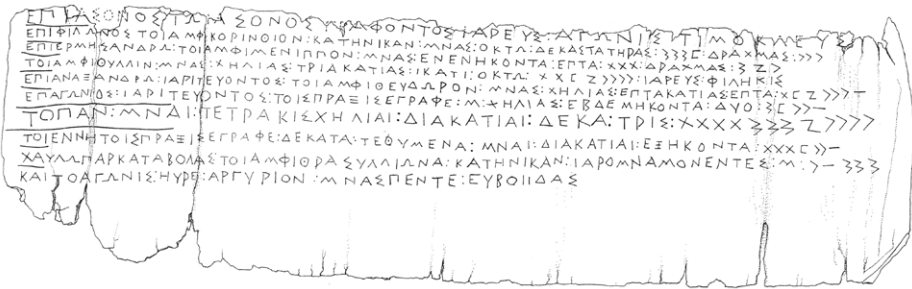 ΕΠΙ ΑΣΟΝΟΣΤΩΙΑΣΟΝΟΣ ΓΡΑΦΟΝΤΟΣΙΑΡΕΥΣ:ΑΓΩΝΙΣ:ΤΙΜΟΚΛΕΥΣ
ΕΠΙΦΙΛΩΝΟΣΤΟΙΑΜΦΙΚΟΡΙΝΘΙΟΝ:ΚΑΤΗΝΙΚΑΝ:ΜΝΑΣ:ΟΚΤΩ:ΔΕΚΑΣΤΑΤΗΡΑΣ:ƷƷƷC:ΔΡΑΧΜΑΣ:>>>
ΕΠΙΕΡΜΗΣΑΝΔΡΩ:ΤΟΙΑΜΦΙΜΕΝΙΠΠΟΝ:ΜΝΑΣ:ΕΝΕΝΗΚΟΝΤΑ:ΕΠΤΑ:ΧΧΧ:ΔΡΑΜΑΣ:Ʒ Z>
ΤΟΙΑΜΦΙΘΥΛΛΙΝ:ΜΝΑΣ:ΧΗΛΙΑΣ:ΤΡΙΑΚΑΤΙΑΣ:ΙΚΑΤΙ:ΟΚΤΩ: ΧΧ C Z>>>>:ΙΑΡΕΥΣ:ΦΙΛΗΚΙΣ
ΕΠΙΑΝΑΞΑΝΔΡΩ:ΙΑΡΙΤΕΥΟΝΤΟΣ:ΤΟΙΑΜΦΙΘΕΥΔΩΡΟΝ:ΜΝΑΣ:ΧΗΛΙΑΣ:ΕΠΤΑΚΑΤΙΑΣΕΠΤΑ:ΧC Z>>>–
ΕΠΑΓΩΝΙΟΣ:ΙΑΡΙΤΕΥΟΝΤΟΣ:ΤΟΙΣΠΡΑΞΙΣΕΓΡΑΦΕ:Μ:ΧΗΛΙΑΣ:ΕΒΔΕΜΗΚΟΝΤΑ:ΔΥΟ:ƷC>>–
ΤΟΠΑΝ:ΜΝΑΙ:ΤΕΤΡΑΚΙΣΧΗΛΙΑΙ:ΔΙΑΚΑΤΙΑΙ:ΔΕΚΑ:ΤΡΙΣ:ΧΧΧΧ ƷƷƷ Z>>>>
ΤΟΙΕΝΝΗΤΟΙΣΠΡΑΞΙΣΕΓΡΑΦΕ:ΔΕΚΑΤΑ:ΤΕΘΥΜΕΝΑ:ΜΝΑΙ:ΔΙΑΚΑΤΙΑΙ:ΕΞΗΚΟΝΤΑ:ΧΧΧC>>–
ΧΑΥΛΩΠΑΡΚΑΤΑΒΟΛΑΣΤΟΙΑΜΦΙΘΡΑΣΥΛΛΙΩΝΑ:ΚΑΤΗΝΙΚΑΝ:ΙΑΡΟΜΝΑΜΟΝΕΝΤΕΣ:Μ:>– ƷƷƷ
ΚΑΙΤΟΑΓΩΝΙΣ:ΗΥΡΕ:ΑΡΓΥΡΙΟΝ:ΜΝΑΣΠΕΝΤΕ:ΕΥΒΟΙΙΔΑΣ